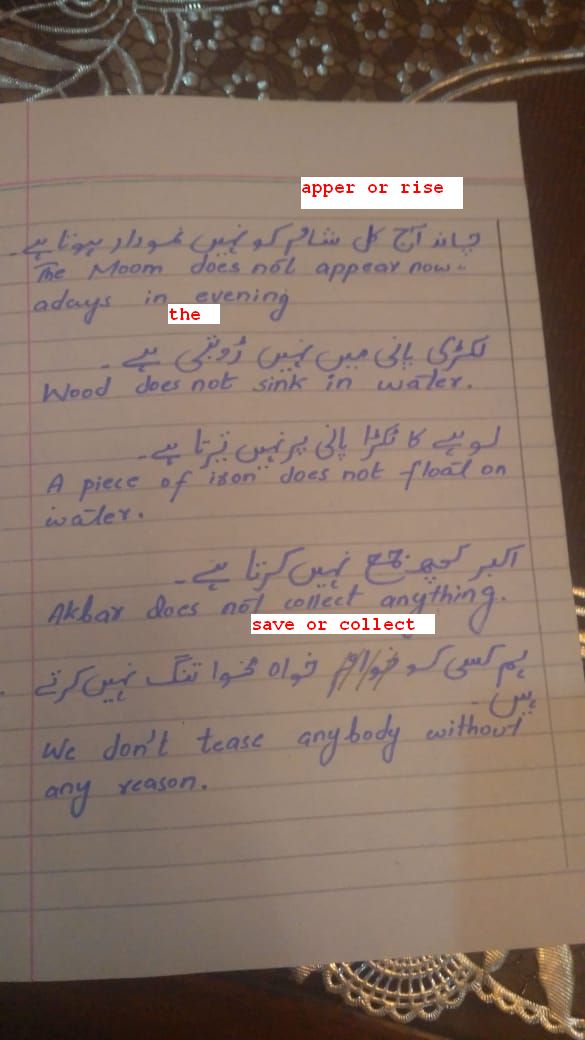 apper or rise
چاند آج کل شام کو نہیں نمودار ہوتا ہے۔
The Moom does not appear now-
adays in evening
the
لکڑی پانی میں نہیں ڈوبتی ہے۔
Wood does not sink in water.
لوہے کا ٹکڑا پانی پر نہیں تیرتا ہے۔
A piece of iron does not float on
water.
اکبر کچھ جمع نہیں کرتا ہے۔
Akbar does not collect anything.
save or collect
ہم کسی کو خواہ مخواہ تنگ نہیں کرتے
ہیں۔
We don't tease anybody without
any reason.